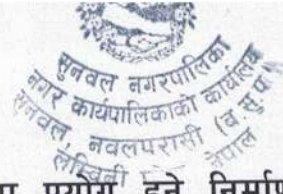 सुनवल नगरपालिका
नगर कार्यपालिकाको कार्यालय
सुनवल नवलपरासी (ब.सु.प)
लुम्बिनी नेपाल
प्रयोग हुने निर्माण